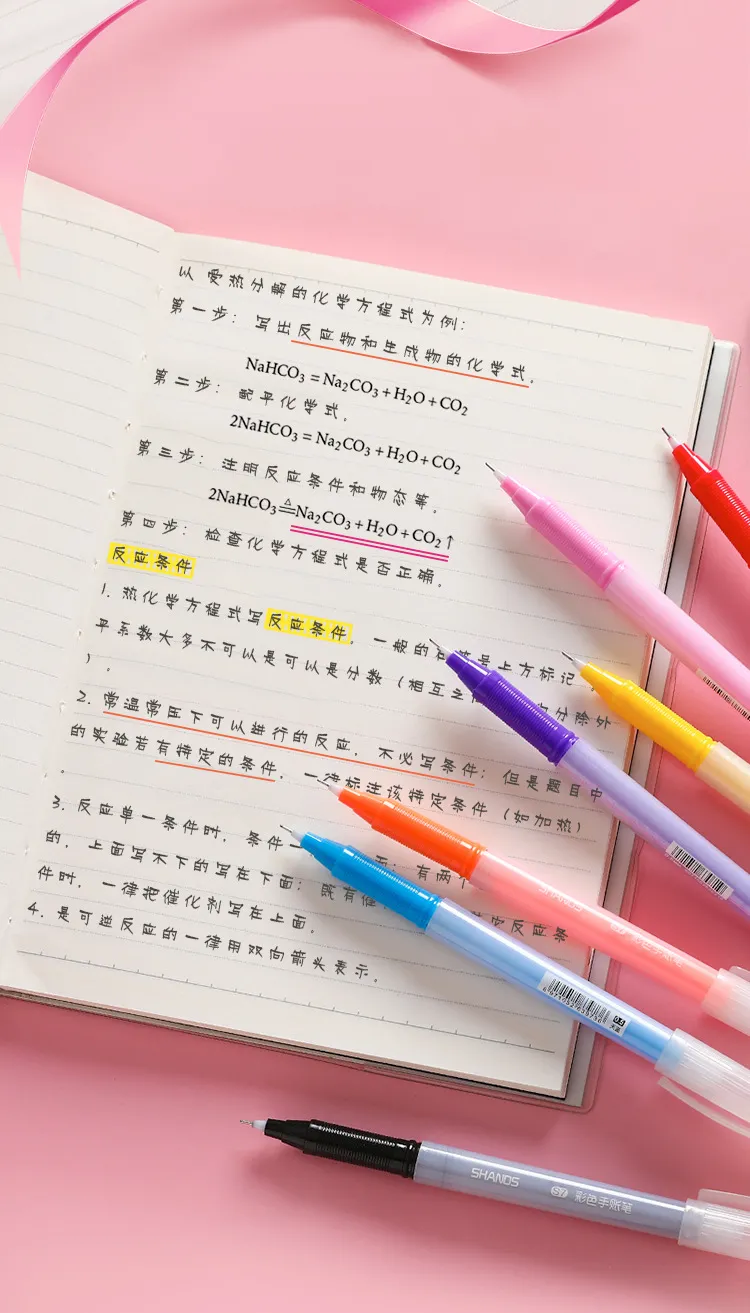 以 受热分解的化学方程式为例：
第一步：写出反应物和生成物的化学式。
NaHCO₃ = Na₂CO₃ + H₂O + CO₂
第二步：配平化学式。
2NaHCO₃ = Na₂CO₃ + H₂O + CO₂
第三步：注明反应条件和物态等。
2NaHCO₃ ≜ Na₂CO₃ + H₂O + CO₂↑
第四步：检查化学方程式是否正确。
反应条件
1. 热化学方程式写反应条件，一般的 号上方标记
平系数大多不可以是可以是分数（相互 分除外
）。
2. 常温常压下可以进行的反应，不必写条件；但是题目中
的实验若有特定的条件，一律标注该特定条件（如加热）
。
3. 反应单一条件时，条件 ；有两个
的，上面写不下的写在下面；既有催 反应条
件时，一律把催化剂写在上面。
4. 是可逆反应的一律用双向箭头表示。
SHANDS
0.5
SHANDS S7 彩色手账笔